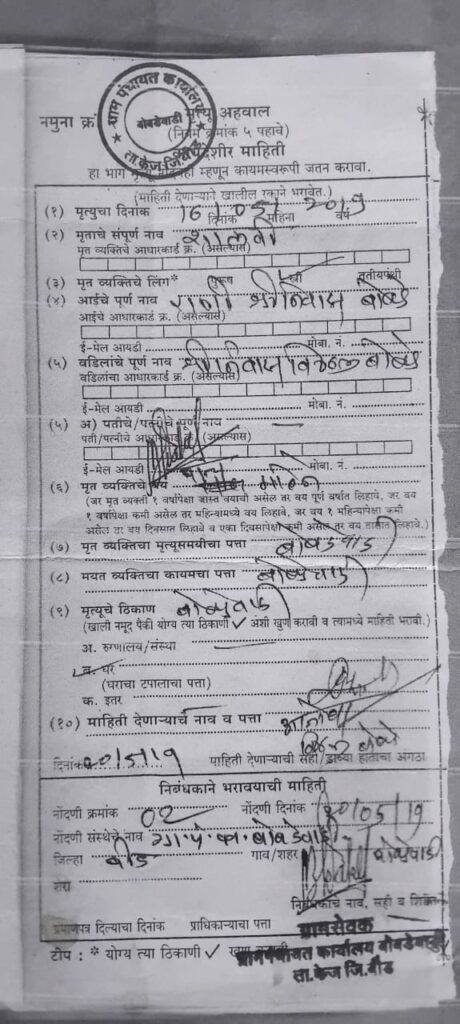 ग्राम पंचायत कार्यालय
बोबडेवाडी
ता.केज जि.बीड
नमुना क्रं मृत्यू अहवाल
(नियम क्रमांक ५ पहावे)
कायदेशीर माहिती
हा भाग मृत्यू म्हणून कायमस्वरूपी जतन करावा.
(माहिती देणाऱ्याने खालील रकाने भरावेत.)
(१) मृत्युचा दिनांक 16 05 2019
दिनांक महिना वर्ष
(२) मृताचे संपूर्ण नाव
मृत व्यक्तिचे आधारकार्ड क्र. (असल्यास)
(३) मृत व्यक्तिचे लिंग* पुरूष स्त्री तृतीयपंथी
(४) आईचे पूर्ण नाव राणी श्रीनिवास बोबडे
आईचे आधारकार्ड क्र. (असल्यास)
ई-मेल आयडी मोबा. नं.
(५) वडिलांचे पूर्ण नाव श्रीनिवास विठ्ठल बोबडे
वडिलांचा आधारकार्ड क्र. (असल्यास)
ई-मेल आयडी मोबा. नं.
(५) अ) पतीचे/पत्नीचे पूर्ण नाव —
पती/पत्नीचे आधारकार्ड क्र. (असल्यास)
ई-मेल आयडी मोबा. नं.
(६) मृत व्यक्तिचे वय
(जर मृत व्यक्ती १ वर्षापेक्षा जास्त वयाची असेल तर वय पूर्ण वर्षात लिहावे, जर वय
१ वर्षापेक्षा कमी असेल तर महिन्यांमध्ये वय लिहावे, जर वय १ महिण्यापेक्षा कमी
असेल तर वय दिवसात लिहावे व एका दिवसापेक्षा कमी असेल तर वय तासात लिहावे.)
(७) मृत व्यक्तिचा मृत्यूसमयीचा पत्ता बोबडेवाडी
(८) मयत व्यक्तिचा कायमचा पत्ता बोबडेवाडी
(९) मृत्यूचे ठिकाण बोबडेवाडी
(खाली नमूद पैकी योग्य त्या ठिकाणी ✓ अशी खुण करावी व त्यामध्ये माहिती भरावी.)
अ. रुग्णालय/संस्था
ब. घर
(घराचा टपालाचा पत्ता)
क. इतर
(१०) माहिती देणाऱ्याचे नाव व पत्ता
दिनांक 20/5/19 माहिती देणाऱ्याची सही/डाव्या हाताचा अंगठा
निबंधकाने भरावयाची माहिती
नोंदणी क्रमांक 02 नोंदणी दिनांक 20/05/19
नोंदणी संस्थेचे नाव ग्रा.पं.का.बोबडेवाडी
जिल्हा बीड गाव/शहर बोबडेवाडी
शेरा
निबंधकाचे नाव, सही व शिक्का
प्रमाणपत्र दिल्याचा दिनांक प्राधिकाऱ्याचा पत्ता
ग्रामसेवक
टीप : * योग्य त्या ठिकाणी ✓ खुण
ग्रामपंचायत कार्यालय बोबडेवाडी
ता.केज जि.बीड